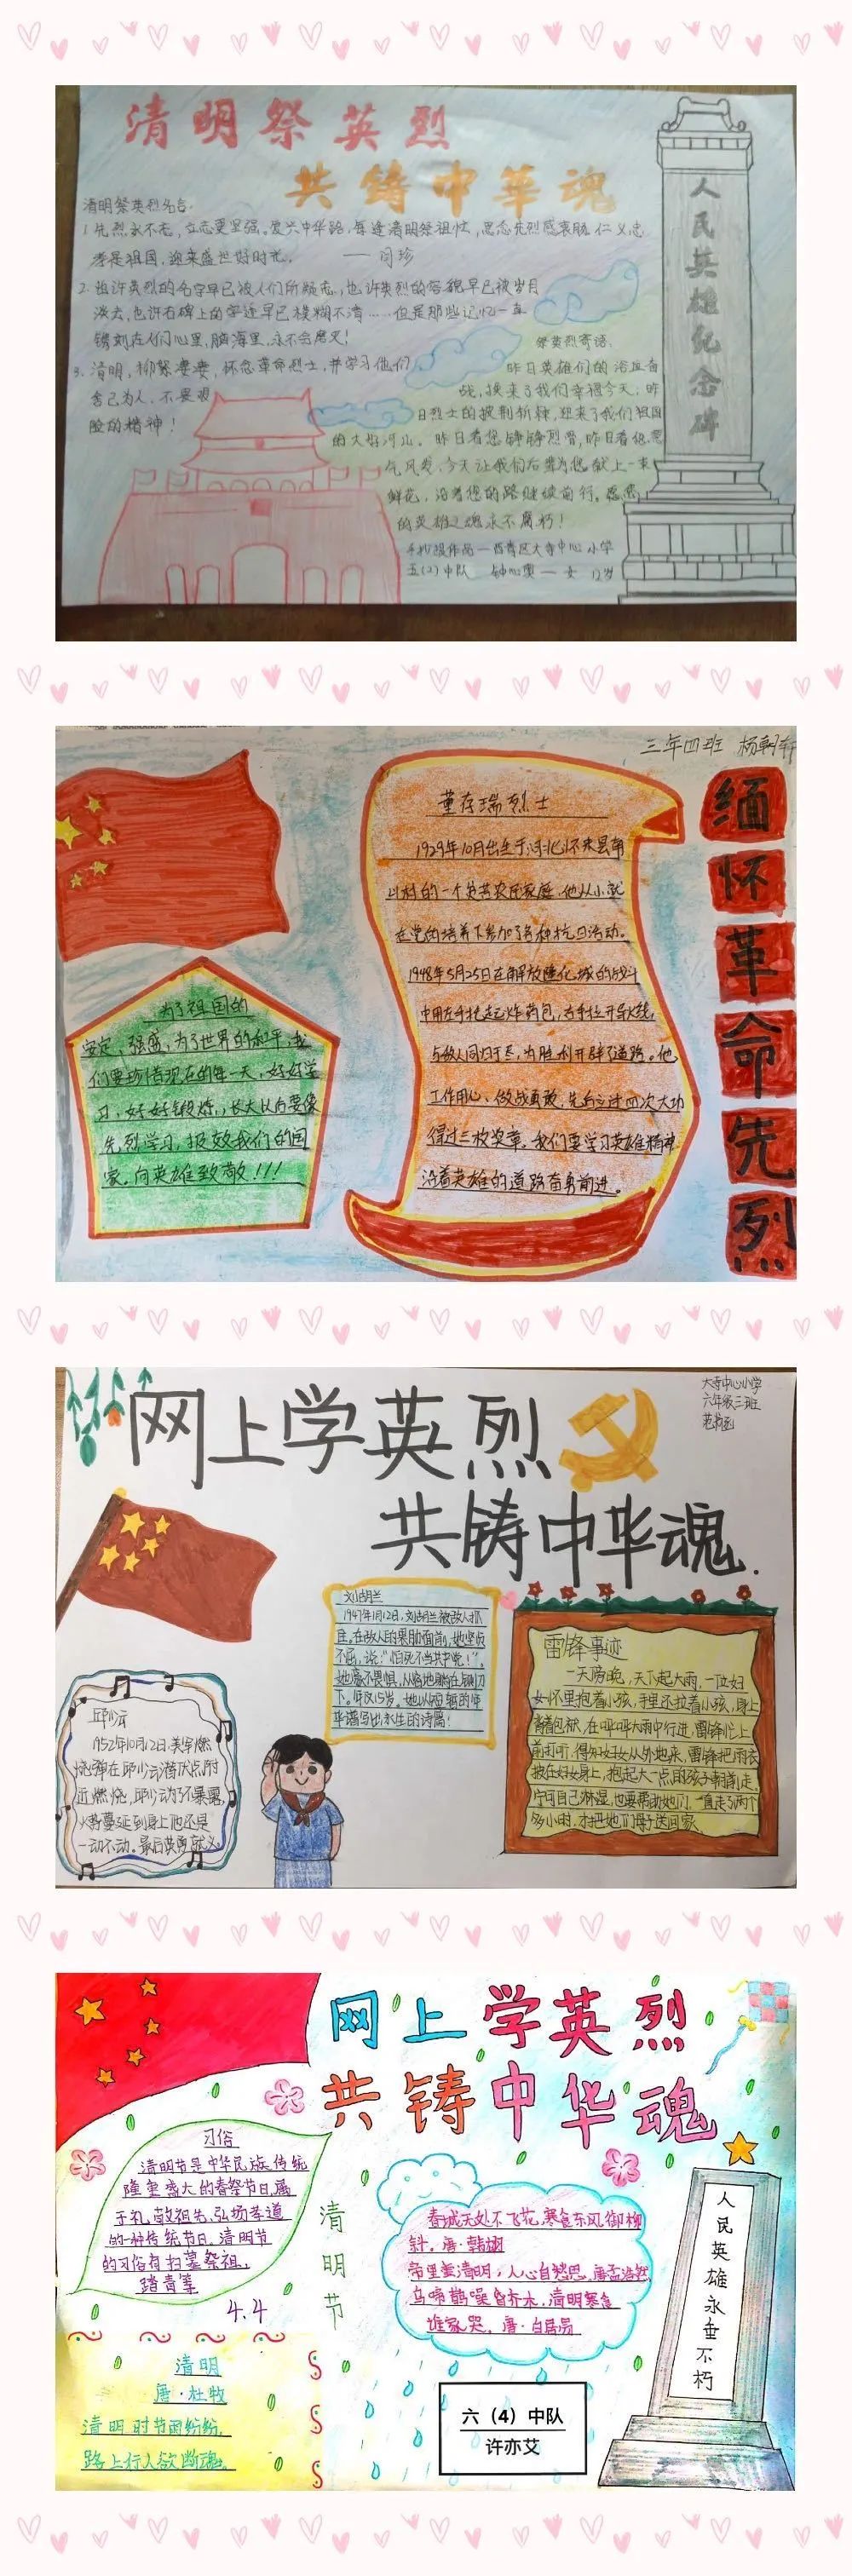 清明祭英烈
共铸中華魂
清明祭英烈名言:
1.先烈永不老,立志更坚强。爱兴中华路,每逢清明祭祖怯,思念先烈感哀肠,仁义忠
孝是祖国,迎来盛世好时光。
2.也许英烈的名字早已被人们所顾忘,也许英烈的容貌早已被岁月
淡去,也许石碑上的字迹早已模糊不清……但是那些记忆一直
镌刻在人们心里,脑海里,永不会磨灭!
3.清明,柳絮凄凄,怀念革命烈士,并学习他们
舍己为人,不畏艰
险的精神!
祭英烈寄语
昨日英雄们的浴血奋
战,换来了我们幸福今天,昨
日烈士的披荆斩棘,迎来了我们祖国
的大好河山。昨日看您铮铮烈骨,昨日看您意
气风发,今天让我们后辈为您献上一束
鲜花,沿着您的路继续前行。愿您
的英雄之魂永不腐朽!
手抄报作品—西青区大寺中心小学
五(2)中队 女 12岁
人民英雄纪念碑
三年四班 杨朝轩
缅怀革命先烈
董存瑞烈士
1929年10月出生于河北怀来县南
山村的一个贫苦农民家庭,他从小就
在党的培养下参加了各种抗日活动。
1948年5月25日在解放隆化城的战斗
中用左手托起炸药包,右手拉开导火线,
与敌人同归于尽,为胜利开辟了道路。他
工作用心、做战勇敢,先后立过四次大功
得过三枚奖章。我们要学习英雄精神
沿着英雄的道路奋勇前进。
为了祖国的
安定、强盛,为了世界的和平,我
们要珍惜现在的每一天,好好学
习,好好锻炼,长大以后要像
先烈学习,报效我们的国
家。向英雄致敬!!!
网上学英烈
共铸中华魂.
大寺中心小学
六年级三班
范书函
刘胡兰
1947年1月12日,刘胡兰被敌人抓
住。在敌人的威胁面前,她坚贞
不屈,说:“怕死不当共产党!”。
她毫不畏惧,从容地躺在铡刀
下。年仅15岁。她以短暂的年
华谱写出永生的诗篇!
雷锋事迹
一天傍晚,天下起大雨,一位妇
女怀里抱着小孩,手里还拉着小孩,身上
背着包袱,在哗哗大雨中行进,雷锋忙上
前打听,得知妇女从外地来,雷锋把雨衣
披在妇女身上,抱起大一点的孩子朝前走,
宁可自己淋湿,也要帮助她们,一直走了两个
多小时,才把她们母子送回家。
邱少云
1952年10月12日,美军燃
烧弹在邱少云潜伏点附
近燃烧,邱少云为了不暴露,
火势蔓延到身上他还是
一动不动。最后英勇就义。
网上学英烈
共铸中华魂
习俗
清明节是中华民族传统
隆重盛大的春祭节日,属
于礼敬祖先、弘扬孝道
的一种传统节日。清明节
的习俗有扫墓祭祖、
踏青等
4.4
清明节
春城无处不飞花,寒食东风御柳
斜。唐·韩翃
帝里重清明,人心自愁思。唐孟浩然
乌啼鹊噪昏乔木,清明寒食
谁家哭。唐·白居易
清明
唐·杜牧
清明时节雨纷纷,
路上行人欲断魂。
人民英雄永垂不朽
六(4)中队
许亦艾